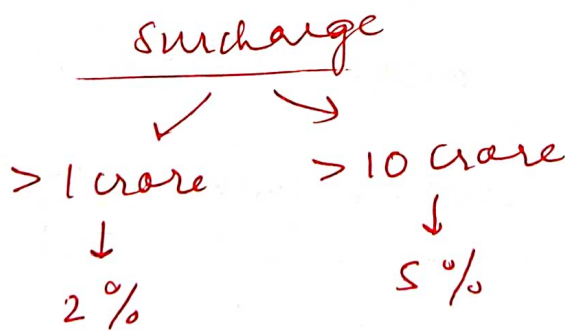 Surcharge
> 1 crore > 10 crore
2 % 5 %